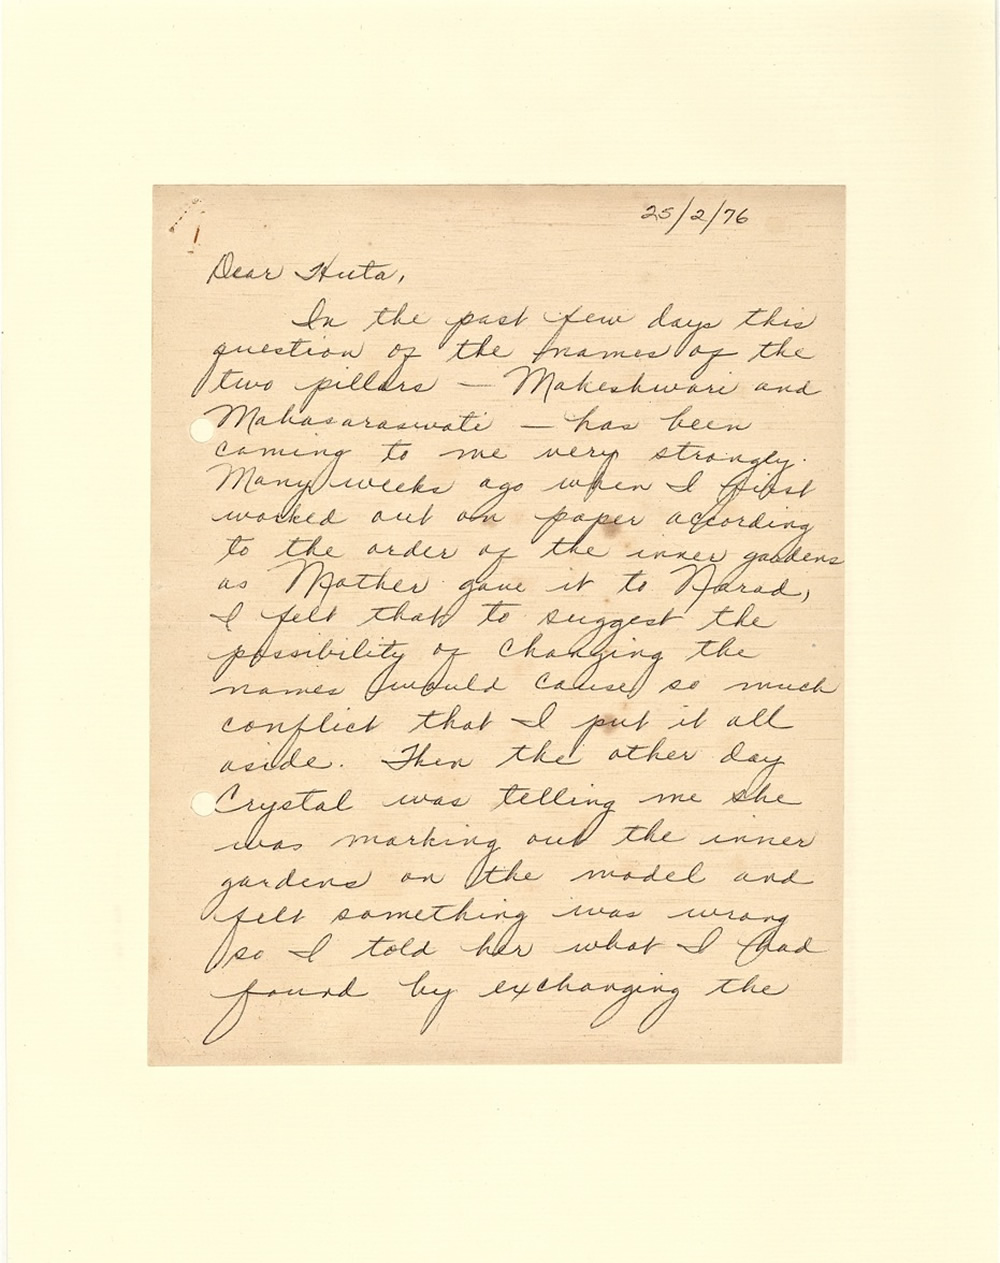 25/2/76
Dear Huta,
In the past few days this
question of the names of the
two pillars — Maheshwari and
Mahasaraswati — has been
coming to me very strongly.
Many weeks ago when I first
worked out on paper according
to the order of the inner gardens
as Mother gave it to Narad,
I felt that to suggest the
possibility of changing the
names would cause so much
conflict that I put it all
aside. Then the other day
Crystal was telling me she
was marking out the inner
gardens on the model and
felt something was wrong
so I told her what I had
found by exchanging the